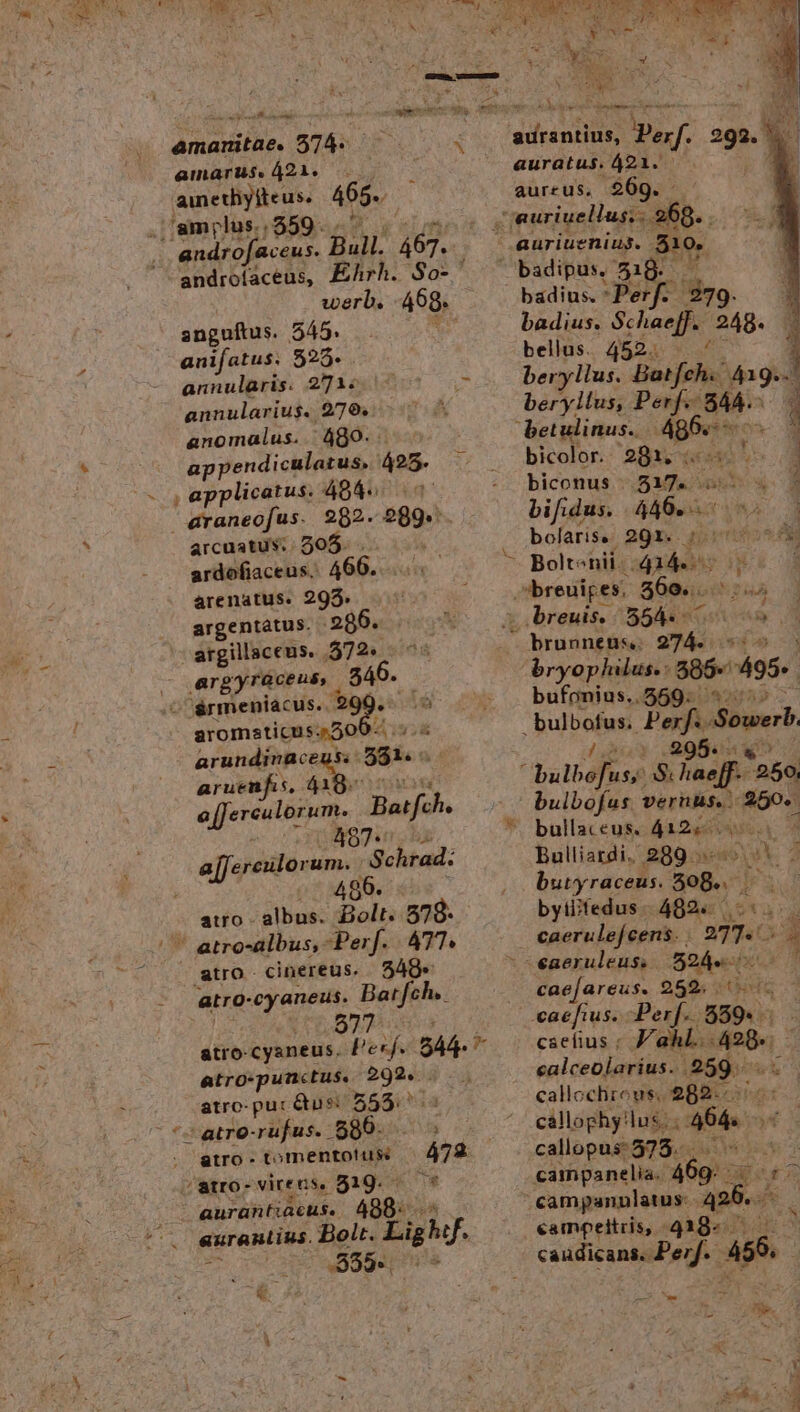 amanitae. 374.
amarus. 421.
amethyſteus. 465.
amplus. 359.
androſaceus. Bull. 467.
androſaceus, Ehrh. So-
werb. 468.
anguſtus. 345.
aniſatus. 323.
annularis. 271.
annularius. 270.
anomalus. 480.
appendiculatus. 423.
applicatus. 484.
araneoſus. 282. 289.
arcuatus. 305.
ardoſiaceus. 466.
arenatus. 293.
argentatus. 286.
argillaceus. 372.
argyraceus, 346.
armeniacus. 299.
aromaticus. 306.
arundinaceus. 331.
aruenſis. 418.
aſſerculorum. Batſch.
487.
aſſerculorum. Schrad.
486.
atro-albus. Bolt. 378.
atro-albus, Perſ. 477.
atro-cinereus. 348.
atro-cyaneus. Batſch.
377.
atro-cyaneus. Perſ. 344.
atro-punctus. 292.
atro-punctus. 353.
atro-rufus. 386.
atro-tomentoſus 472
atro-virens. 319.
aurantiacus. 488.
aurantius. Bolt. Lightf.
335.
aurantius, Perſ. 292.
auratus. 421.
aureus. 269.
auriuellus. 268.
auriuenius. 310.
badipus. 318.
badius. Perſ. 279.
badius. Schaeff. 248.
bellus. 452.
beryllus. Batſch. 419.
beryllus, Perſ. 344.
betulinus. 486.
bicolor. 281.
biconus 317.
bifidus. 446.
bolaris. 291.
Boltonii. 414.
breuipes. 360.
breuis. 354.
brunneus. 274.
bryophilus. 385. 495.
bufonius. 369.
bulboſus. Perſ. Sowerb.
295.
bulboſus, Schaeff. 250.
bulboſus vernus. 250.
bullaceus. 412.
Bulliardi. 289
butyraceus. 308.
byſſiſedus. 482.
caeruleſcens. 277.
caeruleus. 324.
caeſareus. 252.
caeſius. Perſ. 339.
caeſius, Vahl. 428.
calceolarius. 259.
callochrous. 282.
callophyllus. 464.
callopus 373.
campanella. 469.
campanulatus. 426.
campeſtris, 418.
candicans. Perſ. 456.